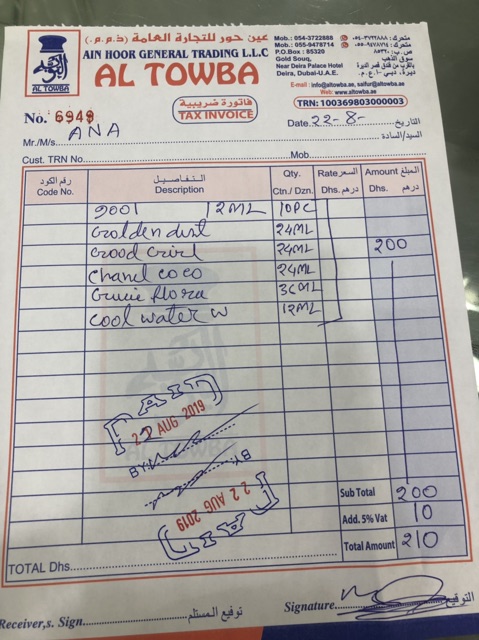 عين حور للتجارة العامة (ذ.م.م.)
AIN HOOR GENERAL TRADING L.L.C
AL TOWBA
AL TOWBA
Mob.: 054-3722888
Mob.: 055-9478714
P.O.Box : 85329
Gold Souq,
Near Deira Palace Hotel
Deira, Dubai-U.A.E.
متحرك: ٠٥٤-٣٧٢٢٨٨٨
متحرك: ٠٥٥-٩٤٧٨٧١٤
ص.ب: ٨٥٣٢٩
سوق الذهب
بالقرب من فندق قصر الديرة
ديرة، دبي - ا.ع.م.
E-mail : info@altowba.ae, saifur@altowba.ae
Web: www.altowba.ae
فاتورة ضريبية
TAX INVOICE
TRN: 100369803000003
No. 6949
Date. 22-8- التاريخ
Mr./M/s. ANA السيد/السادة
Cust. TRN No. Mob.
رقم الكود التفاصيل Qty. Rate السعر Amount المبلغ
Code No. Description Ctn./ Dzn. Dhs. درهم Dhs. درهم
2001 12ML 10PC
Golden dust 24ML
Good Girl 24ML 200
Chanel coco 24ML
Gucci flora 36ML
Cool water w 12ML
PAID
22 AUG 2019
BY
AL TOWBA
BY
22 AUG 2019
PAID
Sub Total 200
Add. 5% Vat 10
TOTAL Dhs. Total Amount 210
Receiver,s. Sign. توقيع المستلم Signature التوقيع